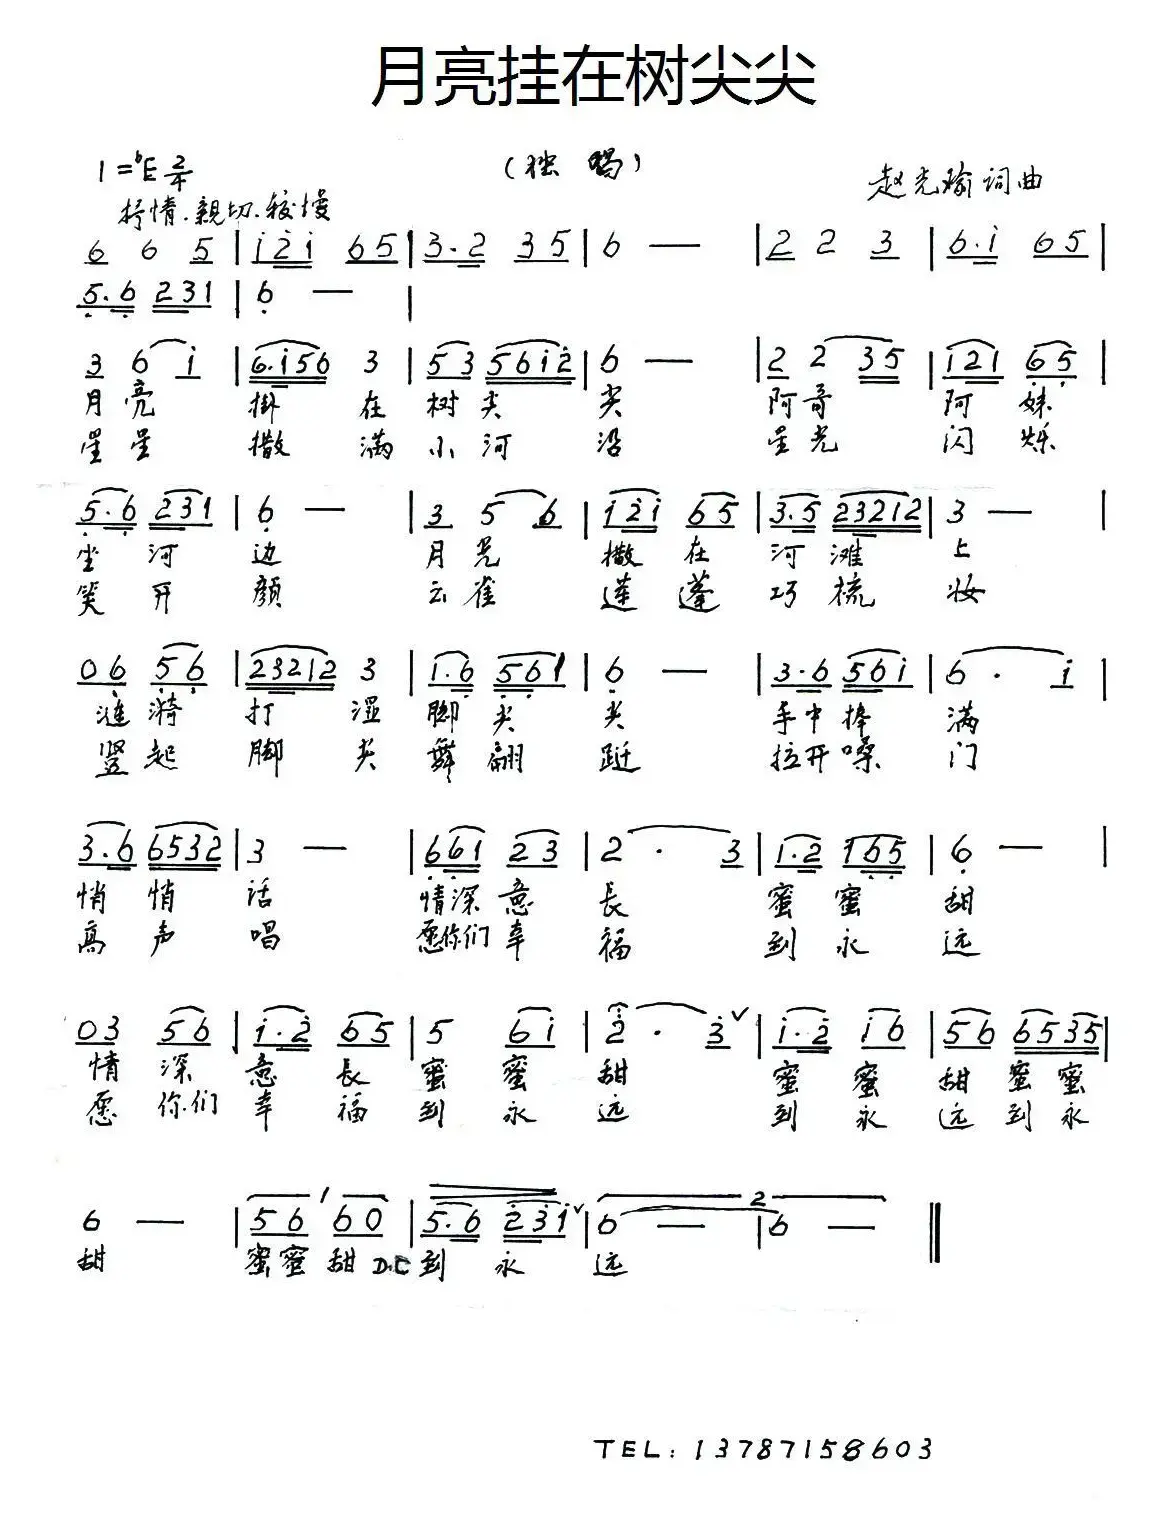 月亮挂在树尖尖
1=♭E 2/4
(独 唱)
赵光瑜 词曲
抒情.親切.较慢
6 6 5 | i 2 i 6 5 | 3·2 3 5 | 6 — | 2 2 3 | 6·i 6 5 |
5·6 2 3 1 | 6 — |
3 6 i | 6·i 5 6 3 | 5 3 5 6 i 2 | 6 — | 2 2 3 5 | i 2 i 6 5 |
月 亮 掛 在 树 尖 尖 阿 哥 阿 妹
星 星 撒 满 小 河 沿 星 光 闪 烁
5·6 2 3 1 | 6 — | 3 5 6 | i 2 i 6 5 | 3·5 2 3 2 1 2 | 3 — |
坐 河 边 月 光 撒 在 河 滩 上
笑 开 颜 云 雀 莲 蓬 巧 梳 妆
0 6 5 6 | 2 3 2 1 2 3 | 1·6 5 6 1 | 6 — | 3·6 5 6 i | 6 · i |
涟 漪 打 湿 脚 尖 尖 手 中 捧 满
竖 起 脚 尖 舞 翩 跹 拉 开 嗓 门
3·6 6 5 3 2 | 3 — | 6 6 1 2 3 | 2 · 3 | 1·2 1 6 5 | 6 — |
悄 悄 话 情 深 意 長 蜜 蜜 甜
高 声 唱 愿 你 们 幸 福 到 永 远
0 3 5 6 | i·2 6 5 | 5 6 i | 2 · 3 ∨ | i·2 i 6 | 5 6 6 5 3 5 |
情 深 意 長 蜜 蜜 甜 蜜 蜜 甜 蜜 蜜
愿 你 们 幸 福 到 永 远 到 永 远 到 永
1 2
6 — | 5 6 6 0 | 5·6 2 3 i ∨ | 6 — | 6 — ‖
甜 蜜 蜜 甜 D.C 到 永 远
TEL: 13787158603